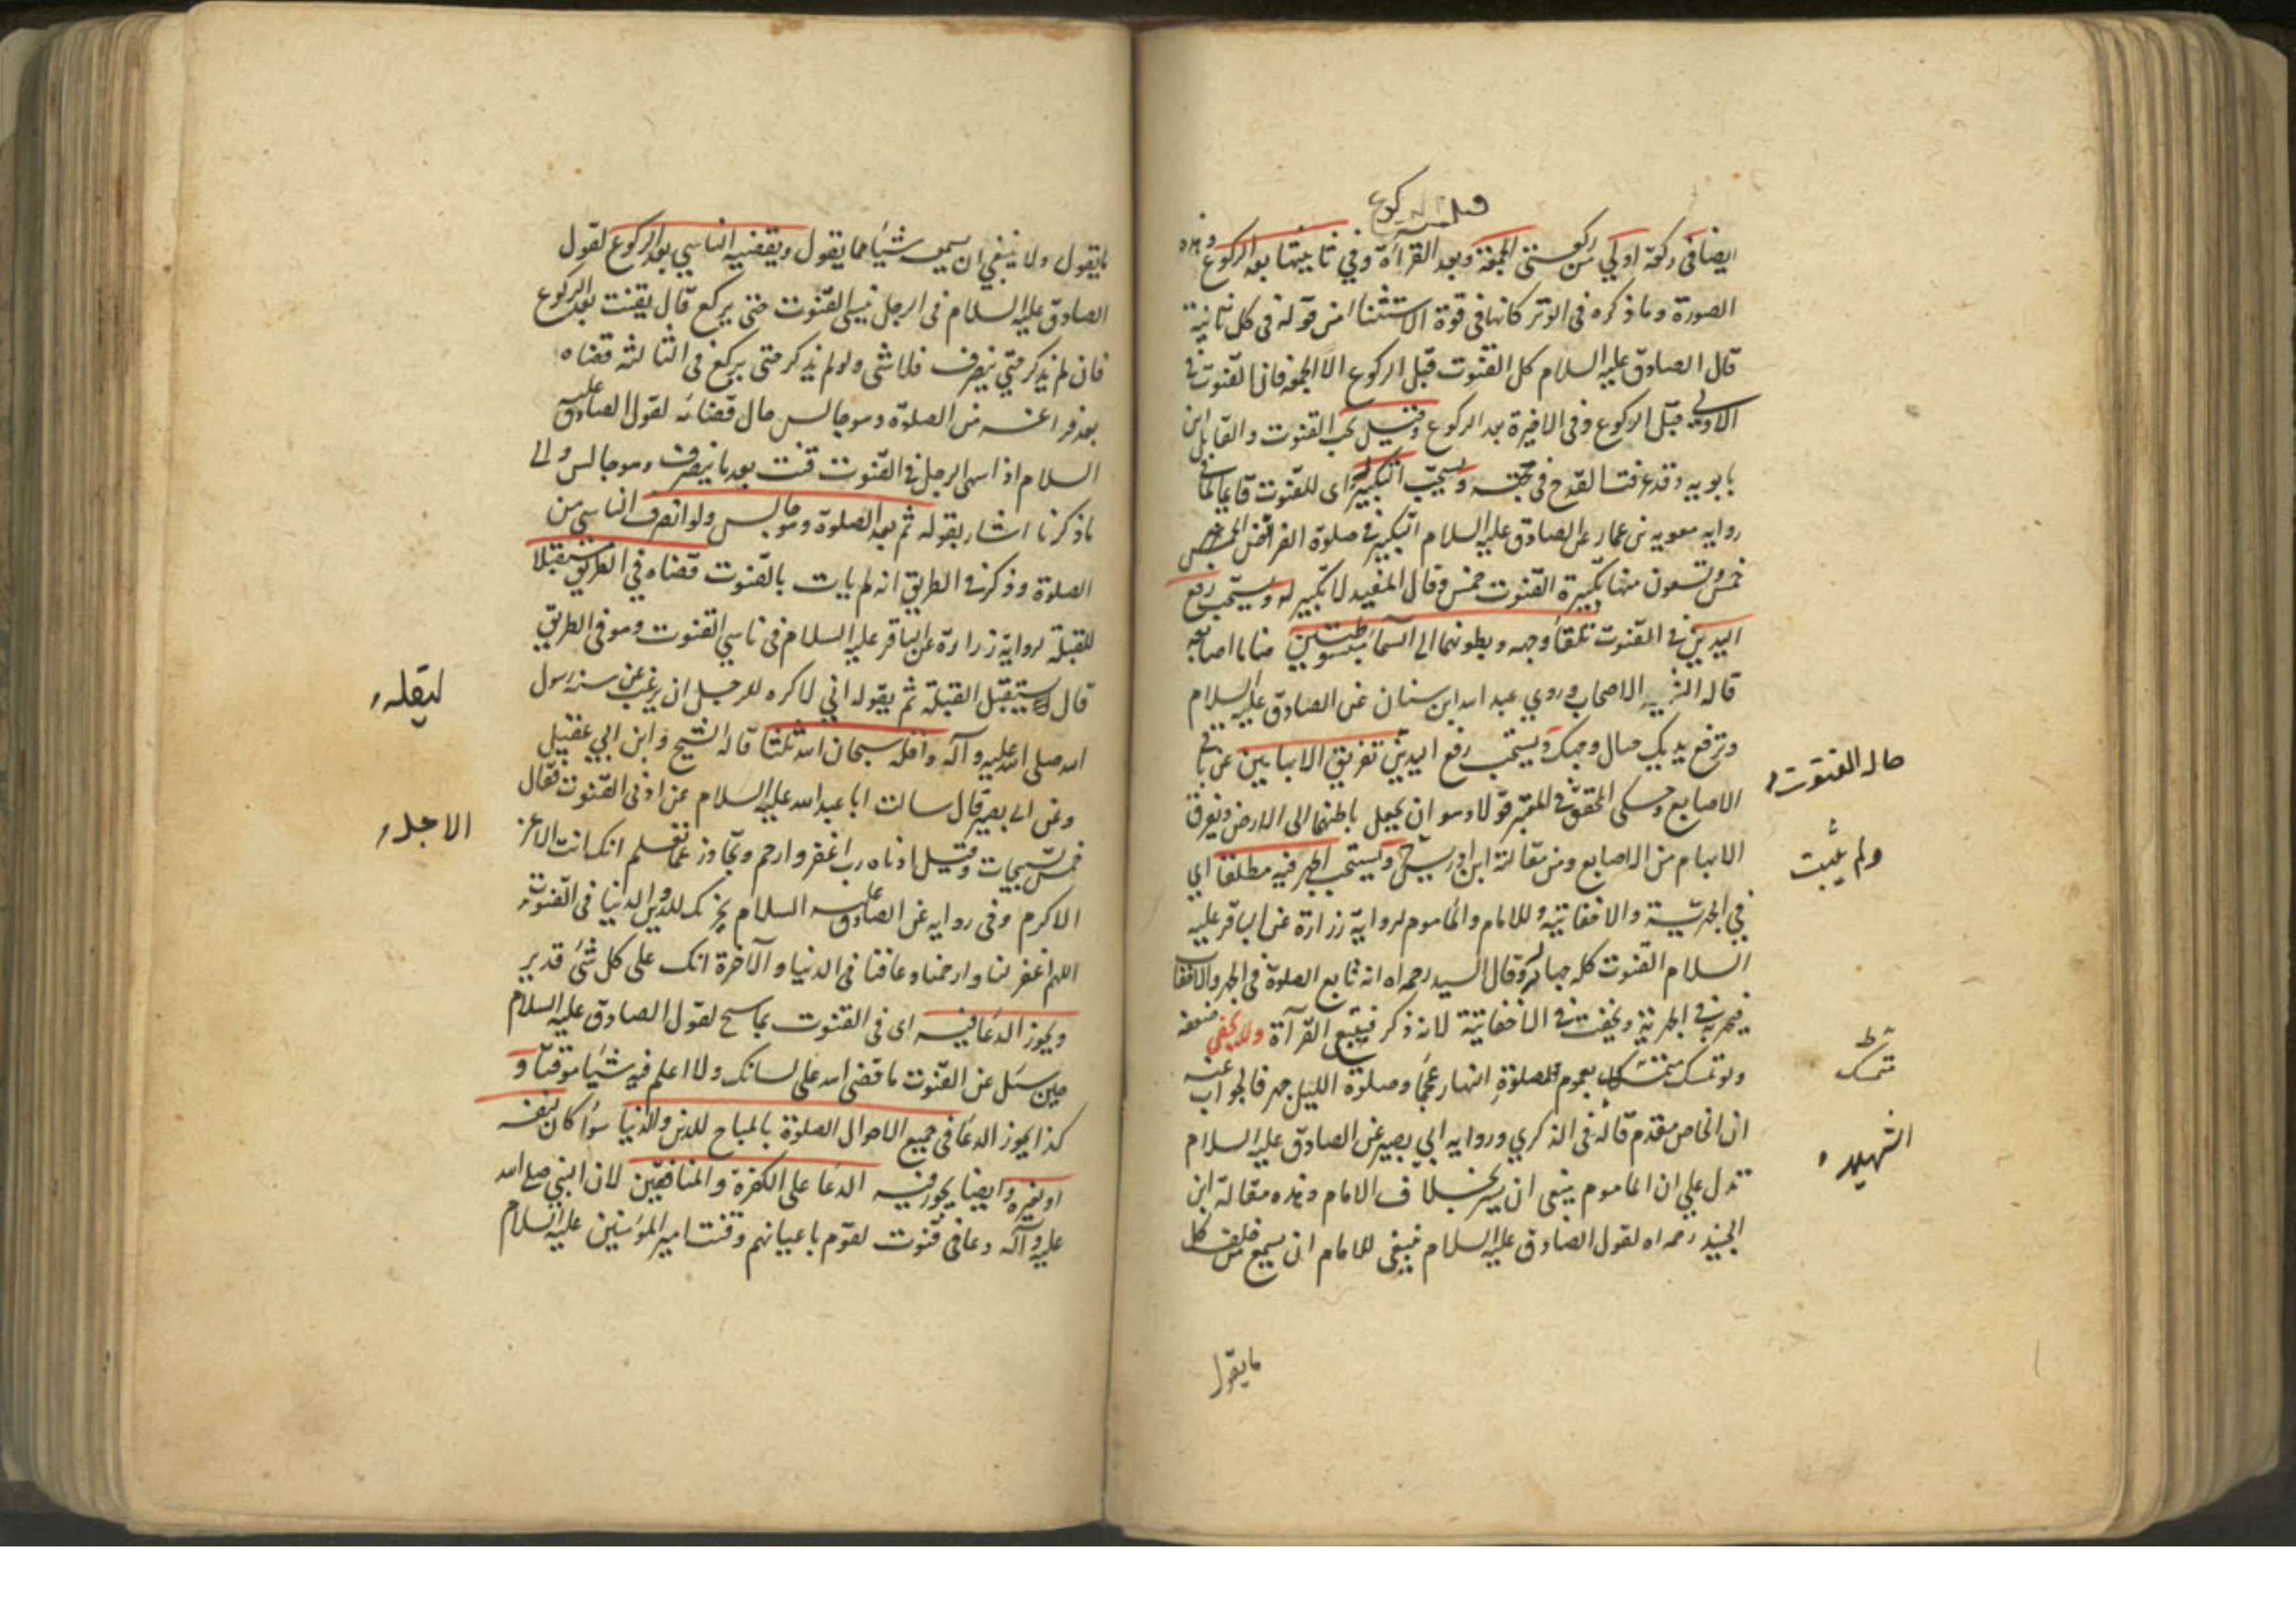 قبل الركوع
ايضا فى ركعة اولي من ركعتى الجمعة وبعد القرآءة وفي ثانيتها بعد الركوع وهذه
الصورة وما ذكره فى الوتر كانها فى قوة الاستثنا من قوله فى كل ثانية
قال الصادق عليه السلام كل القنوت قبل الركوع الا الجمعة فان القنوت فى
الاولى قبل الركوع وفى الاخيرة بعد الركوع وقيل يجب القنوت والقايل ابن
بابويه وقد عرفت القدح فى حجته ويستحب التكبير له اى للقنوت قايما لما فى
روايه معويه بن عمار عن الصادق عليه السلام التكبير فى صلوة الفرائض الخمس
خمس وتسعون منها تكبيرة القنوت خمس وقال المفيد لا تكبير له ويستحب رفع
اليدين فى القنوت تلقآ وجهه وبطونهما الى السمآ مبسوطتين ضاما اصابعه
قاله الاصحاب وروي عبد الله ابن سنان عن الصادق عليه السلام
وترفع يديك حيال وجهك ويستحب رفع اليدين تفريق الابهامين عن باقى
الاصابع وحكى المحقق فى المعتبر قولا وهو ان يجعل باطنهما الى الارض ويفرق
الابهام من الاصابع ومن مقالة ابن ادريس ويستحب الجهر فيه مطلقا اي
في الجهرية والاخفاتية وللامام والماموم لرواية زرارة عن الباقر عليه
السلام القنوت كله جهار وقال السيد رحمه الله انه تابع الصلوة فى الجهر والاخفات
فيجهر به فى الجهرية ويخفت فى الاخفاتية لانه ذكر فيتبع القرآءة ولا يخفى ضعفه
ولو تمسك متمسك بعموم صلوة النهار عجما وصلوة الليل جهر فالجواب عنه
ان الخاص مقدم قاله فى الذكري وروايه ابي بصير عن الصادق عليه السلام
تدل علي ان الماموم ينبغى ان يسر بخلاف الامام وهذه مقالة ابن
الجنيد رحمه الله لقول الصادق عليه السلام ينبغى للامام ان يسمع من خلفه كل
ما يقول
حاله القنوت
ولم يثبت
متمسك
الشهيد
ما يقول ولا ينبغي ان يسمعه شيئا مما يقول ويقضيه الناسي بعد الركوع لقول
الصادق عليه السلام فى الرجل نيسى القنوت حتى يركع قال يقنت بعد الركوع
فان لم يذكر حتى ينصرف فلا شى ولو لم يذكر حتى يركع فى الثالثه قضاه
بعد فراغه من الصلوة وهو جالس حال قضائه لقول الصادق عليه
السلام اذا سهى الرجل فى القنوت قنت بعد ما ينصرف وهو جالس والى
ما ذكرنا اشار بقوله ثم بعد الصلوة وهو جالس ولو انصرف الناسي من
الصلوة وذكر فى الطريق انه لم يات بالقنوت قضاه في الطريق مستقبلا
للقبلة لرواية زرارة عن الباقر عليه السلام فى ناسي القنوت وهو فى الطريق
قال يستقبل القبلة ثم يقوله اني لاكره للرجل ان يرغب عن سنة رسول
الله صلى الله عليه وآله واقله سبحان الله ثلثا قاله الشيخ وابن ابي عقيل
وعن ابى بصير قال سالت ابا عبد الله عليه السلام عن ادنى القنوت فقال
خمس تسبيحات وقيل ادناه رب اغفر وارحم وتجاوز عما تعلم انك انت الاعز
الاكرم وفى روايه عن الصادق عليه السلام يجزيك للدين والدنيا فى القنوت
اللهم اغفر لنا وارحمنا وعافنا فى الدنيا والآخرة انك على كل شئ قدير
ويجوز الدعآ فيه اى فى القنوت بما سنح لقول الصادق عليه السلام
حين سئل عن القنوت ما قضى الله على لسانك ولا اعلم فيه شيئا موقتا و
كذا يجوز الدعآ فى جميع احوال الصلوة بالمباح للدين والدنيا سوآ كان لنفسه
او لغيره وايضا يجوز فيه الدعآ على الكفرة والمنافقين لان النبي صلى الله
عليه وآله دعا فى قنوت لقوم باعيانهم وقنت امير المؤمنين عليه السلام
ليقله
الاجل